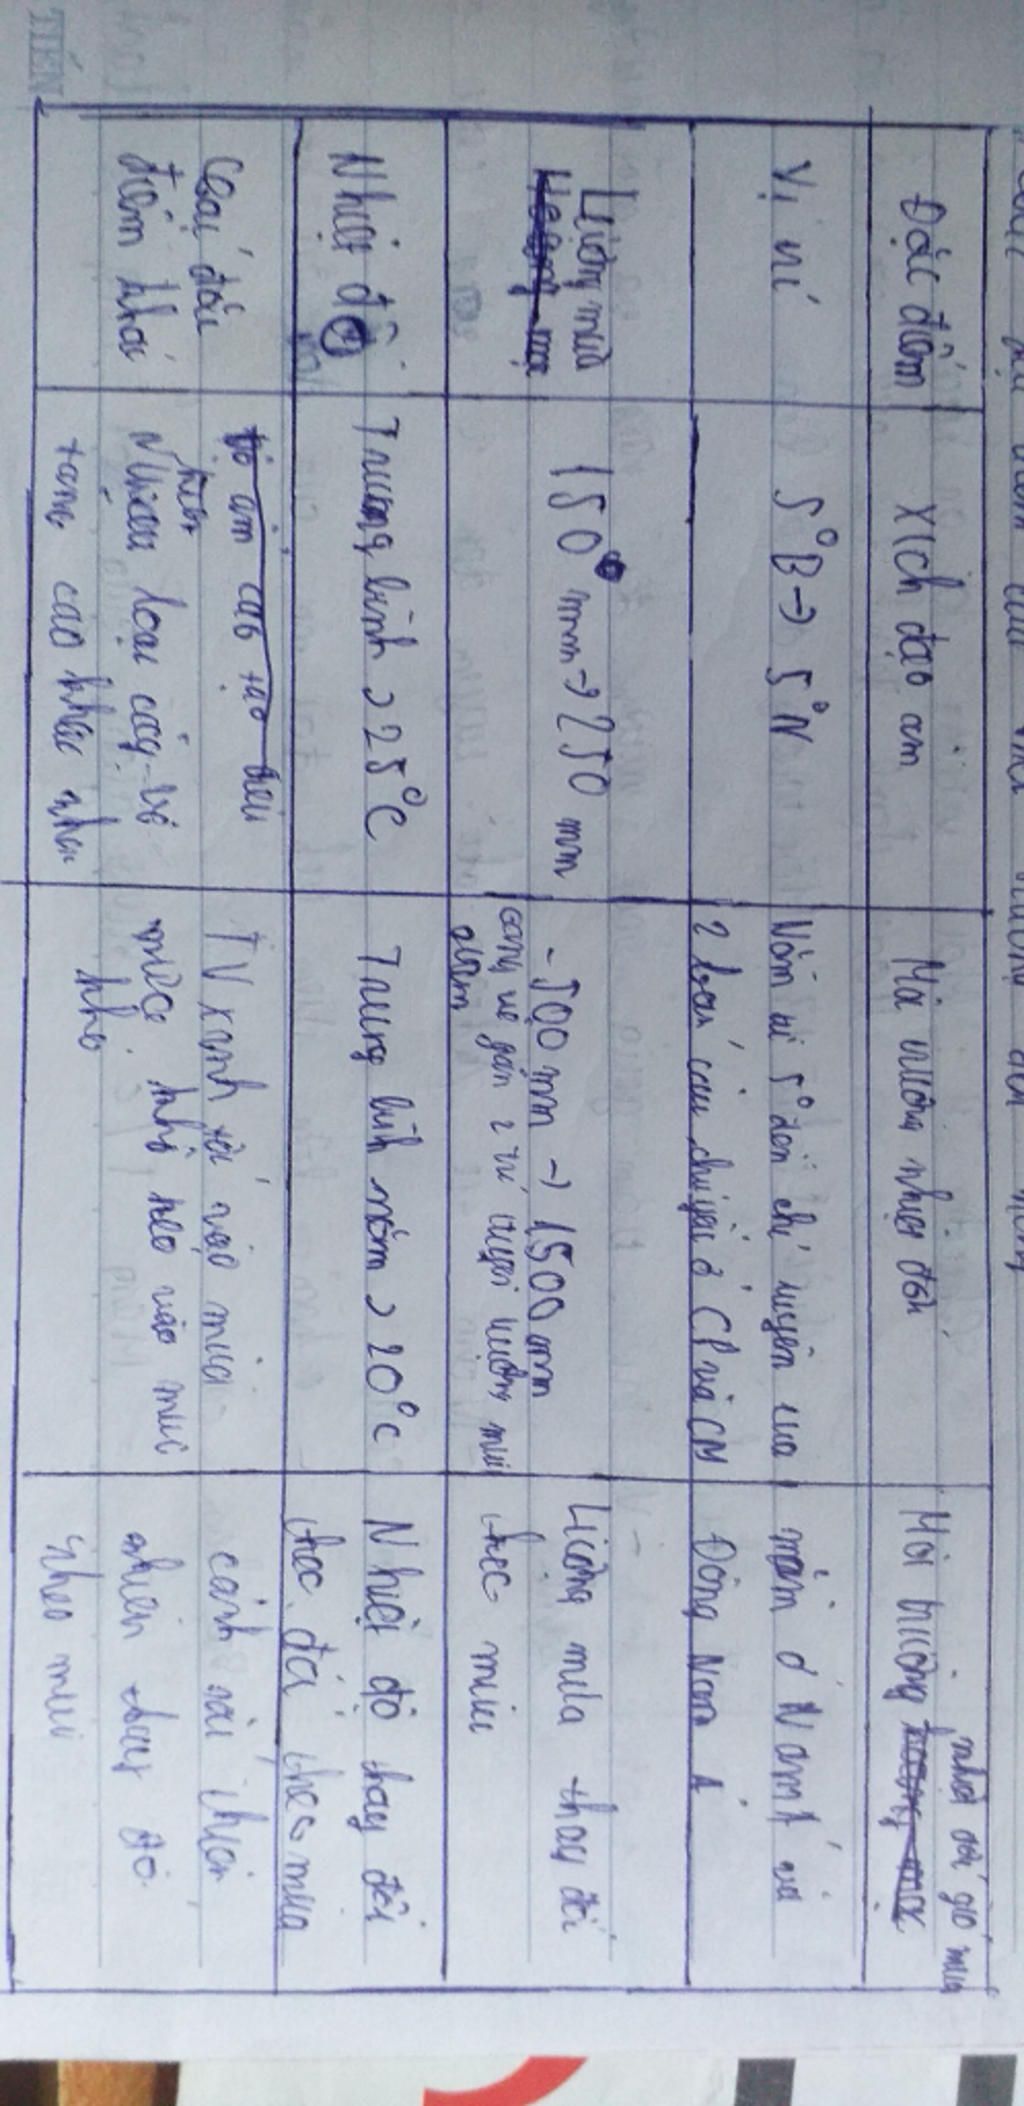 TIẾN
Đặc điểm
Xích đạo ẩm
Môi trường nhiệt đới
Môi trường
nhiệt đới gió mùa
Vị trí
5°B → 5°N
Nằm từ 5° đến chí tuyến của
2 bán cầu
ở CP và CM
nằm ở Nam Á và
Đông Nam Á
Lượng mưa
150 mm → 250 mm
- 500 mm → 1500 mm
càng về gần 2 chí tuyến lượng mưa
giảm
Lượng mưa thay đổi
theo mùa
Nhiệt độ
Trung bình > 25°C
Trung bình năm > 20°C
Nhiệt độ thay đổi
theo
theo mùa
Các đặc
điểm khác
Nhiều loại cây
tầng cao khác nhau
TV xanh tốt vào mùa
mưa, khô héo vào mùa
khô
cảnh sắc thiên
nhiên thay đổi
theo mùa